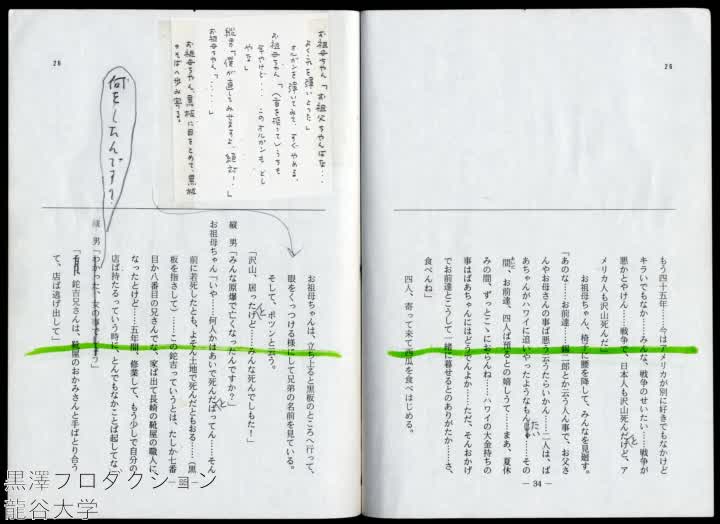 26
もう四十五年……今はアメリカが別に好きでもなかけど
キライでもなか……みんな、戦争のせいたい……戦争が
悪かとやけん……戦争で、日本人も沢山死んだけど、ア
メリカ人も沢山死んだ」
お祖母ちゃん、椅子に腰を降して、みんなを見廻す。
「あのな……お前達……錫二郎とか云う人の事で、お父さ
んやお母さんの事ば悪う云うたらいかん……二人は、ば
あちゃんがハワイに追いやったようなもん……その
たい
間、お前達、四人ば預るとの嬉しうて……まあ、夏休
みの間、ずっとここにおらんね……ハワイの大金持ちの
事はばあちゃんにはどうでんよか……ただ、そんおかげ
でお前達とこうして一緒に暮せるとのありがたか……さ、
食べんね」
四人、寄って来て西瓜を食べはじめる。
— 34 —
26
お祖母ちゃん「お祖父ちゃんはな‥
よくこれを弾いとった」
オルガンを弾いてみて、すぐやめる。
お祖母ちゃん「
やけど‥‥このオルガンも
やな」
縦男「僕が直してみせますよ、絶対‥」
お祖母ちゃん「‥‥‥」
お祖母ちゃん、黒板に目をとめて、黒板
のそばへ歩み寄る。
何をしたんです?
お祖母ちゃんは、立ち上ると黒板のところへ行って、
眼をくっつける様にして兄弟の名前を見ている。
そして、ポツンと云う。
「沢山、居ったけど……みんな死んでしもた!」
縦 男「みんな原爆で亡くなったんですか?」
お祖母ちゃん「いや……何人かはあいで死んだばってん……そん
前に若死したとも、よそん土地で死んだともおる……(黒
板を指さして)……この鉈吉っていうとは、たしか七番
目か八番目の兄さんでな、家ば出て長崎の靴屋の職人に
なったとけど……五年間、修業して、もう少しで自分の
店ば持たるっていう時に、とんでもなかことば起してな」
縦 男「わかった、女の事でしょう」
「鉈吉兄さんは、靴屋のおかみさんと手ばとり合う
て、店ば逃げ出して」
黒澤プロダクション
龍谷大学